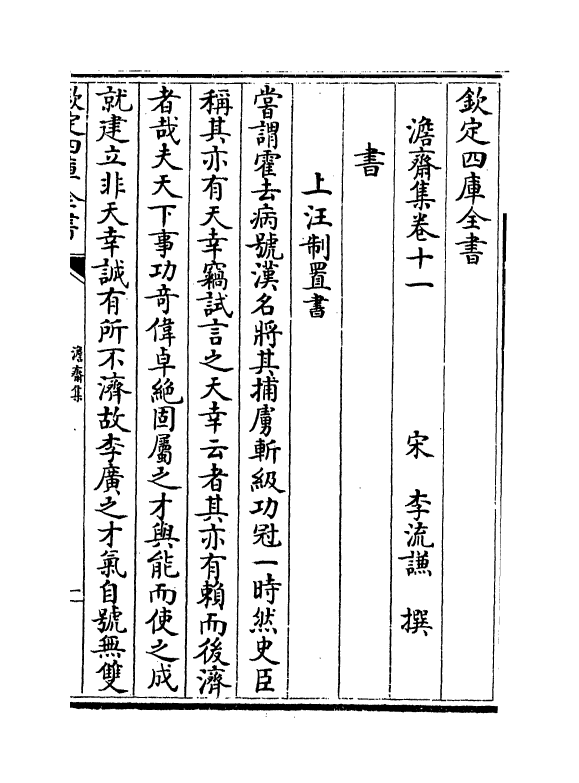 欽定四庫全書
澹齋集卷十一　　　宋　李流謙　撰
書
上汪制置書
嘗謂霍去病號漢名將其捕虜斬級功冠一時然史臣
稱其亦有天幸竊試言之天幸云者其亦有賴而後濟
者哉夫天下事功奇偉卓絶固屬之才與能而使之成
就建立非天幸誠有所不濟故李廣之才氣自號無雙
欽定四庫全書
澹齋集